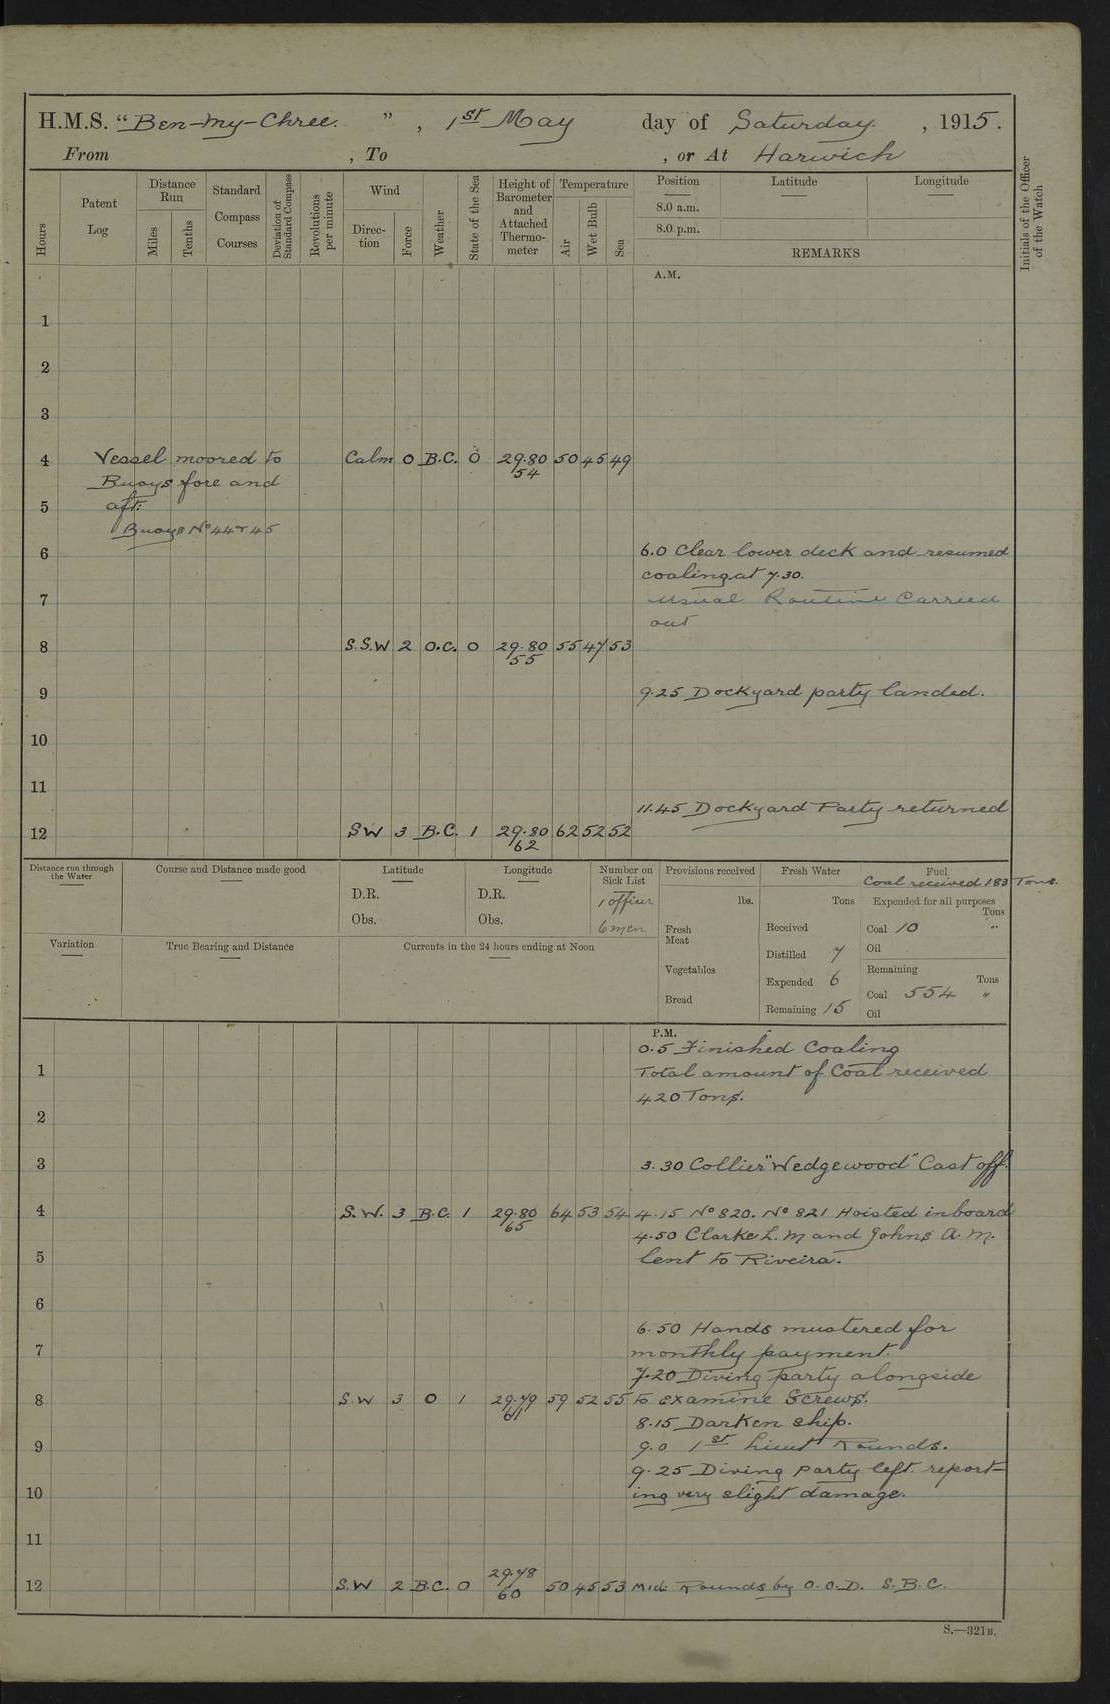 H.M.S. "Ben-my-Chree.", 1st May day of Saturday, 1915.
From , To , or At Harwich
Hours
Patent Log
Distance Run
Miles
Tenths
Standard Compass Courses
Deviation of Standard Compass
Revolutions per minute
Wind
Direction
Force
Weather
State of the Sea
Height of Barometer and Attached Thermometer
Temperature
Air
Wet Bulb
Sea
Position Latitude Longitude
8.0 a.m.
8.0 p.m.
REMARKS
Initials of the Officer of the Watch
A.M.
1
2
3
4 Vessel moored to Calm 0 B.C. 0 29.80 50 45 49
54
Buoys fore and
5 aft:
Buoys No 44 & 45
6 6.0 Clear lower deck and resumed
coaling at 7.30.
7 Usual Routine Carried
out
8 S.S.W 2 O.C. 0 29.80 55 47 53
55
9 9.25 Dockyard party landed.
10
11
11.45 Dockyard Party returned
12 SW 3 B.C. 1 29.80 62 52 52
62
Distance run through the Water
Course and Distance made good
Latitude
D.R.
Obs.
Longitude
D.R.
Obs.
Number on Sick List
1 officer
6 men
Provisions received
lbs.
Fresh Meat
Vegetables
Bread
Fresh Water
Tons
Received
Distilled 7
Expended 6
Remaining 15
Fuel
Coal received 183 Tons.
Expended for all purposes
Tons
Coal 10 "
Oil
Remaining
Tons
Coal 554 "
Oil
Variation
True Bearing and Distance
Currents in the 24 hours ending at Noon
P.M.
0.5 Finished Coaling
1 Total amount of Coal received
420 Tons.
2
3 3.30 Collier "Wedgewood" Cast off.
4 S.W. 3 B.C. 1 29.80 64 53 54 4.15 No 820. No 821 Hoisted inboard
65
4.50 Clarke L. M and Johns A. M.
5 lent to Riveira.
6
6.50 Hands mustered for
7 monthly payment.
7.20 Diving party alongside
8 S.W 3 O 1 29.79 59 52 55 to examine Screws.
61
8.15 Darken ship.
9 9.0 1st Lieut Rounds.
9.25 Diving party left. report-
10 ing very slight damage.
11
12 S.W 2 B.C. 0 29.78 50 45 53 Mid: Rounds by O.O.D. S.B.C.
60
S.—321B.